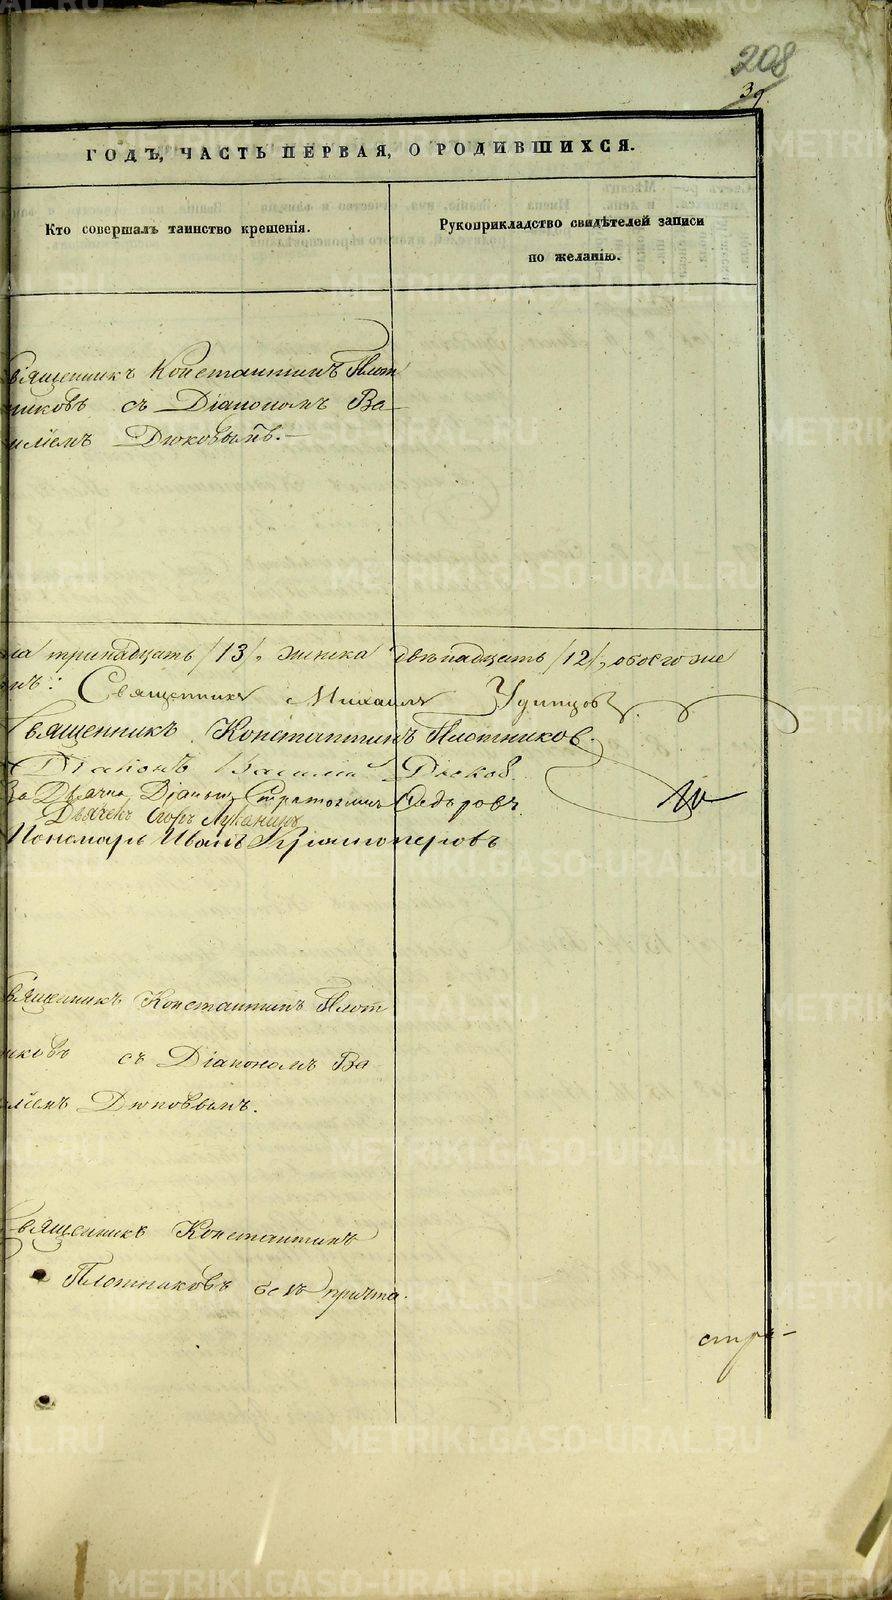 208
39
ГОДЪ, ЧАСТЬ ПЕРВАЯ, О РОДИВШИХСЯ.
Кто совершалъ таинство крещенія.
Рукоприкладство свидѣтелей записи
по желанію.
священникъ Константинъ Плот
никовъ съ Діакономъ Ва-
силіемъ Дюковымъ.-
тринадцать /13/, женска двѣнадцать /12/, обоего же
Священникъ Михаилъ Удинцовъ.
Священникъ Константинъ Плотников.
Діаконъ Василій Дюков.
За Дьячка Діаконъ Стратоникъ Ѳедоровъ
Дьячекъ Егоръ Луканинъ
Пономарь Иванъ
священникъ Константинъ Плот
никовъ съ Діакономъ Ва
силіемъ Дюковымъ.
Священникъ Константинъ
Плотниковъ безъ причта.
стра-
METRIKI.GASO-URAL.RU